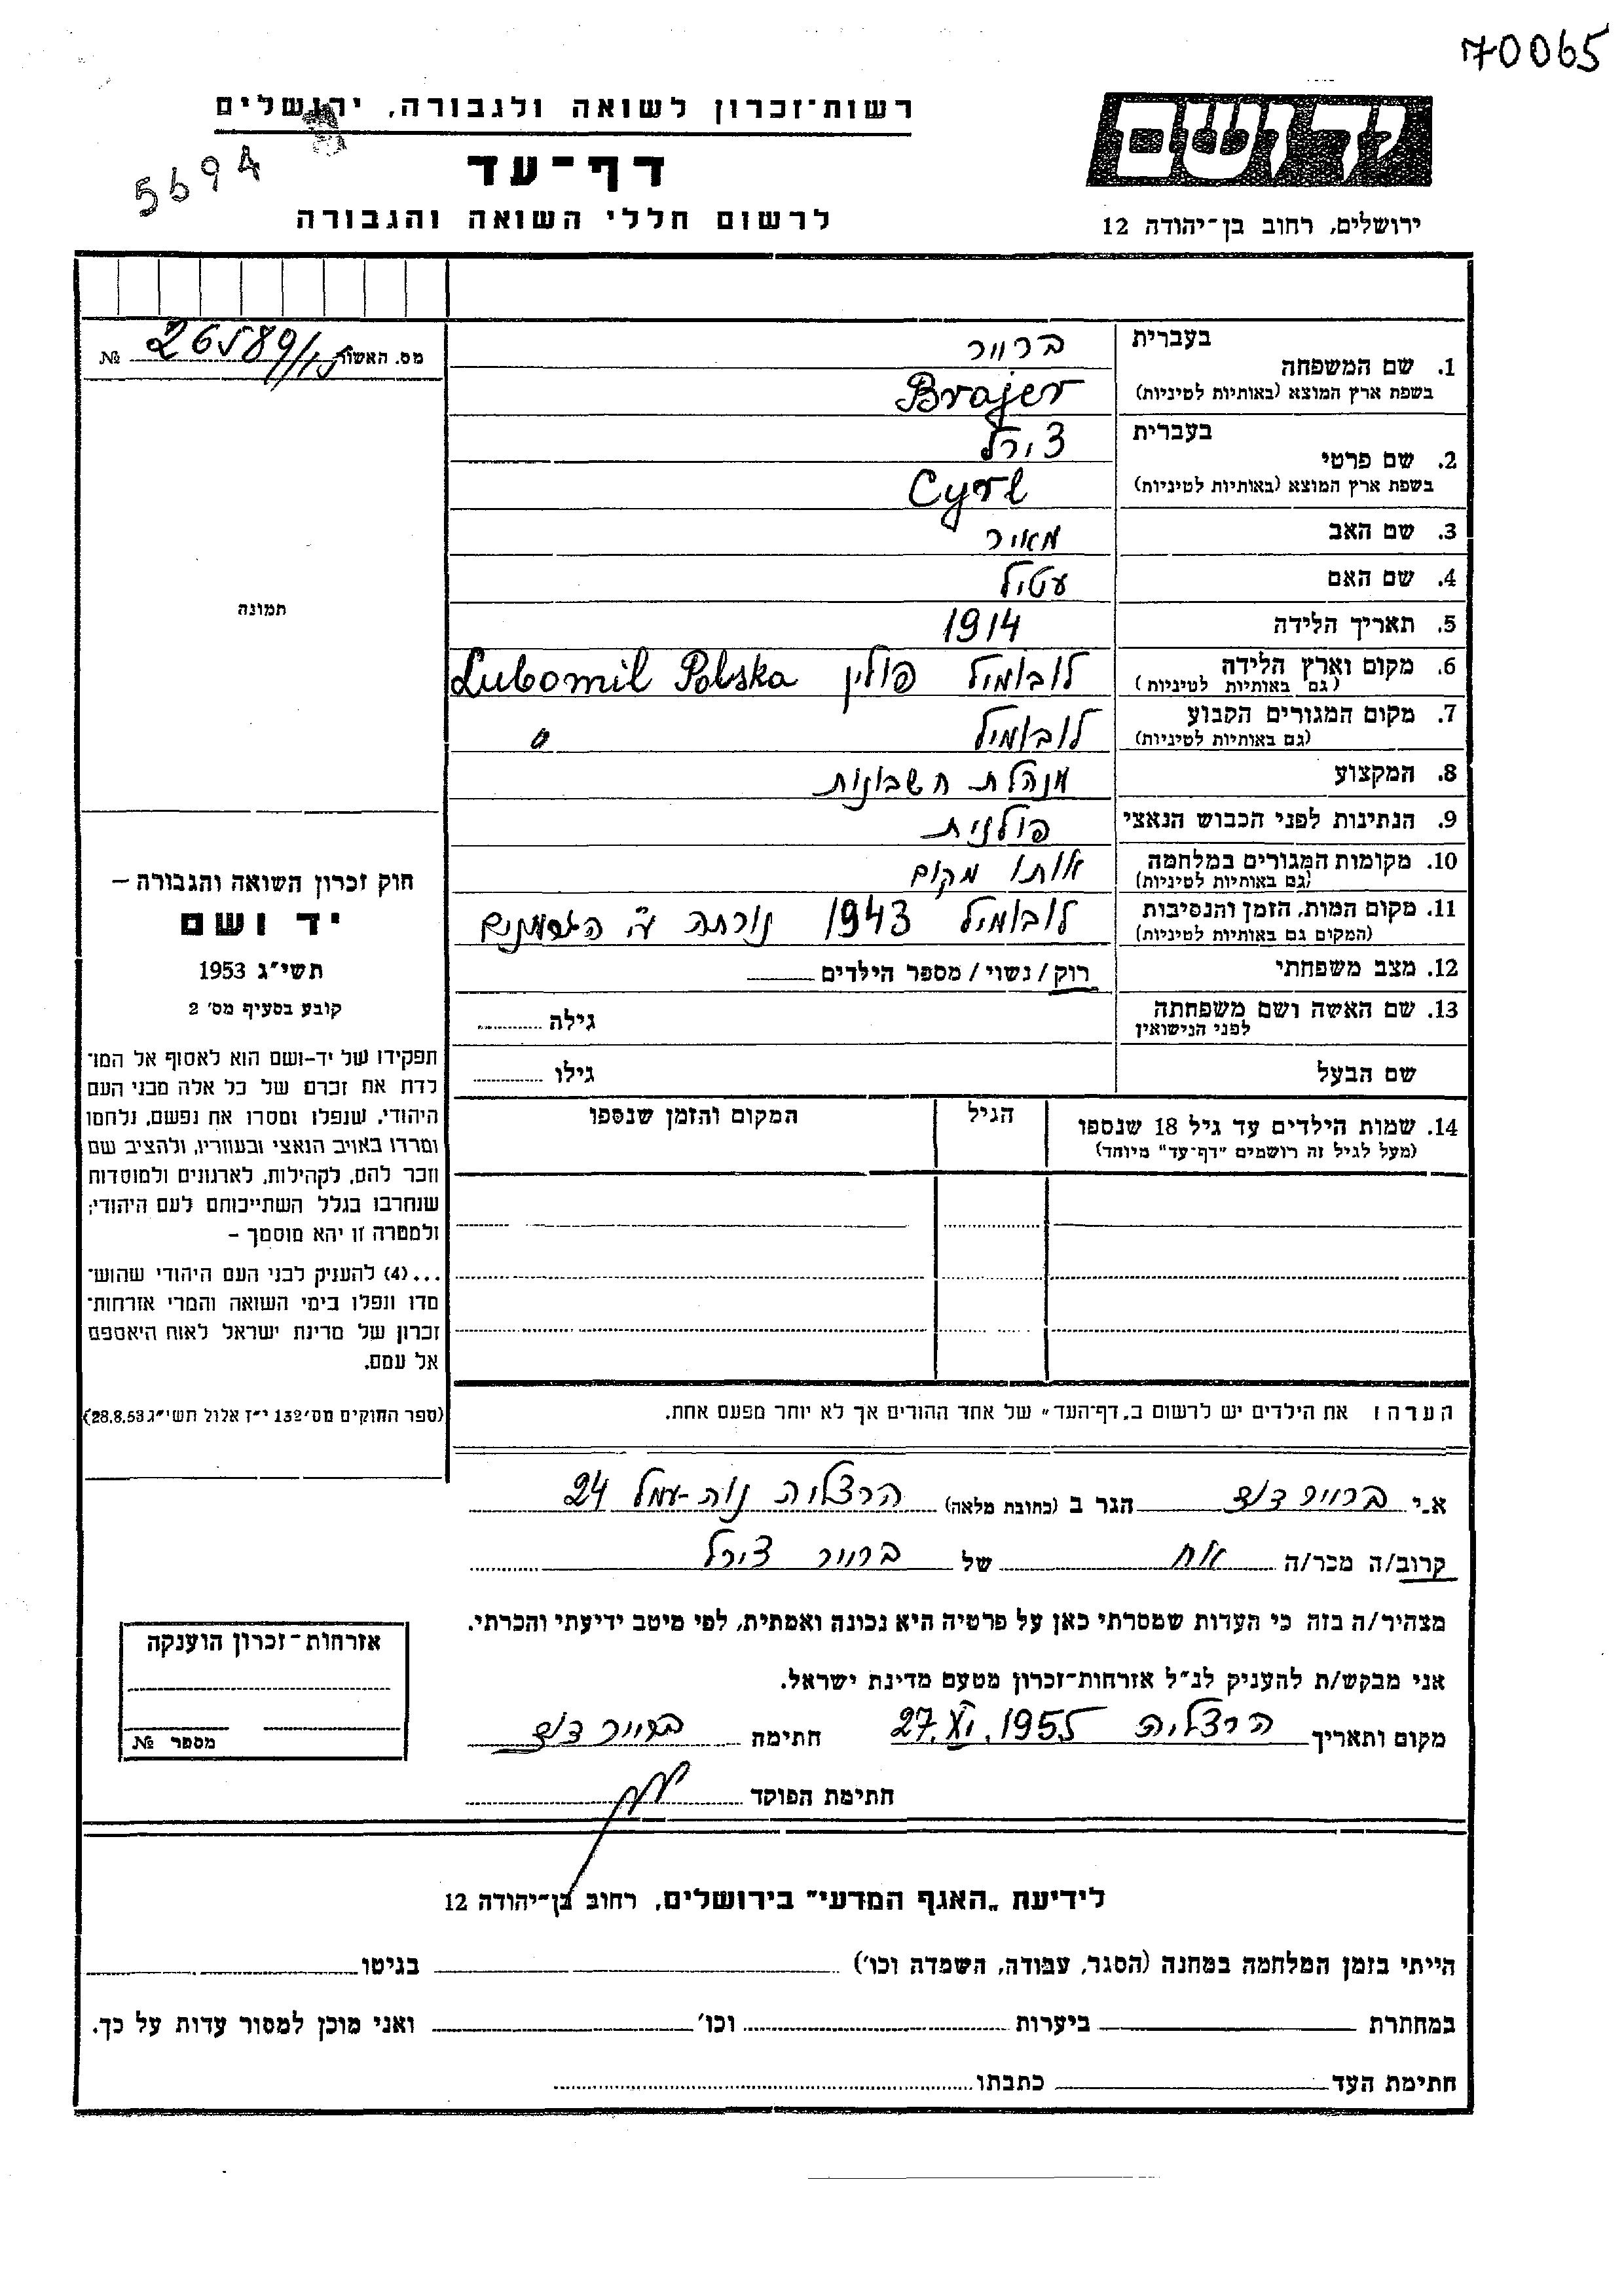 70065
רשות־זכרון לשואה ולגבורה, ירושלים
דף־עד
לרשום חללי השואה והגבורה
5694
יד ושם
ירושלים, רחוב בן־יהודה 12
מס. האשור 26589/15 №
תמונה
חוק זכרון השואה והגבורה –
יד ושם
תשי״ג 1953
קובע בסעיף מס׳ 2
תפקידו של יד-ושם הוא לאסוף אל המו־
לדת את זכרם של כל אלה מבני העם
היהודי, שנפלו ומסרו את נפשם, נלחמו
ומרדו באויב הנאצי ובעוזריו, ולהציב שם
וזכר להם, לקהילות, לארגונים ולמוסדות
שנחרבו בגלל השתייכותם לעם היהודי;
ולמטרה זו יהא מוסמך –
...(4) להעניק לבני העם היהודי שהוש־
מדו ונפלו בימי השואה והמרי אזרחות־
זכרון של מדינת ישראל לאות היאספם
אל עמם.
(ספר החוקים מס׳ 132 י״ז אלול תשי״ג 28.8.53)
בעברית ברייר
1. שם המשפחה
בשפת ארץ המוצא (באותיות לטיניות) Brajer
בעברית צירל
2. שם פרטי
בשפת ארץ המוצא (באותיות לטיניות) Cyrl
3. שם האב מאיר
4. שם האם עטיל
5. תאריך הלידה 1914
6. מקום וארץ הלידה לובומיל פולין Lubomil Polska
(גם באותיות לטיניות)
7. מקום המגורים הקבוע לובומיל
(גם באותיות לטיניות)
8. המקצוע מנהלת חשבונות
9. הנתינות לפני הכבוש הנאצי פולנית
10. מקומות המגורים במלחמה אותו מקום
(גם באותיות לטיניות)
11. מקום המות, הזמן והנסיבות לובומיל 1943 נורתה ע״י הגרמנים
(המקום גם באותיות לטיניות)
12. מצב משפחתי רוק/נשוי/מספר הילדים
13. שם האשה ושם משפחתה גילה
לפני הנישואין
שם הבעל גילו
14. שמות הילדים עד גיל 18 שנספו הגיל המקום והזמן שנספו
(מעל לגיל זה רושמים "דף-עד" מיוחד)
הערה: את הילדים יש לרשום ב„דף־העד״ של אחד ההורים אך לא יותר מפעם אחת.
א.י ברייר דוד הגר ב (כתובת מלאה) הרצליה נוה-עמל 24
קרוב/ה מכר/ה אח של ברייר צירל
מצהיר/ה בזה כי העדות שמסרתי כאן על פרטיה היא נכונה ואמתית, לפי מיטב ידיעתי והכרתי.
אני מבקש/ת להעניק לנ״ל אזרחות־זכרון מטעם מדינת ישראל.
מקום ותאריך הרצליה 27.VI.1955 חתימה ברייר דוד
חתימת הפוקד
אזרחות־זכרון הוענקה
מספר №
לידיעת „האגף המדעי״ בירושלים, רחוב בן־יהודה 12
הייתי בזמן המלחמה במחנה (הסגר, עבודה, השמדה וכו׳) בגיטו
במחתרת ביערות וכו׳ ואני מוכן למסור עדות על כך.
חתימת העד כתבתו